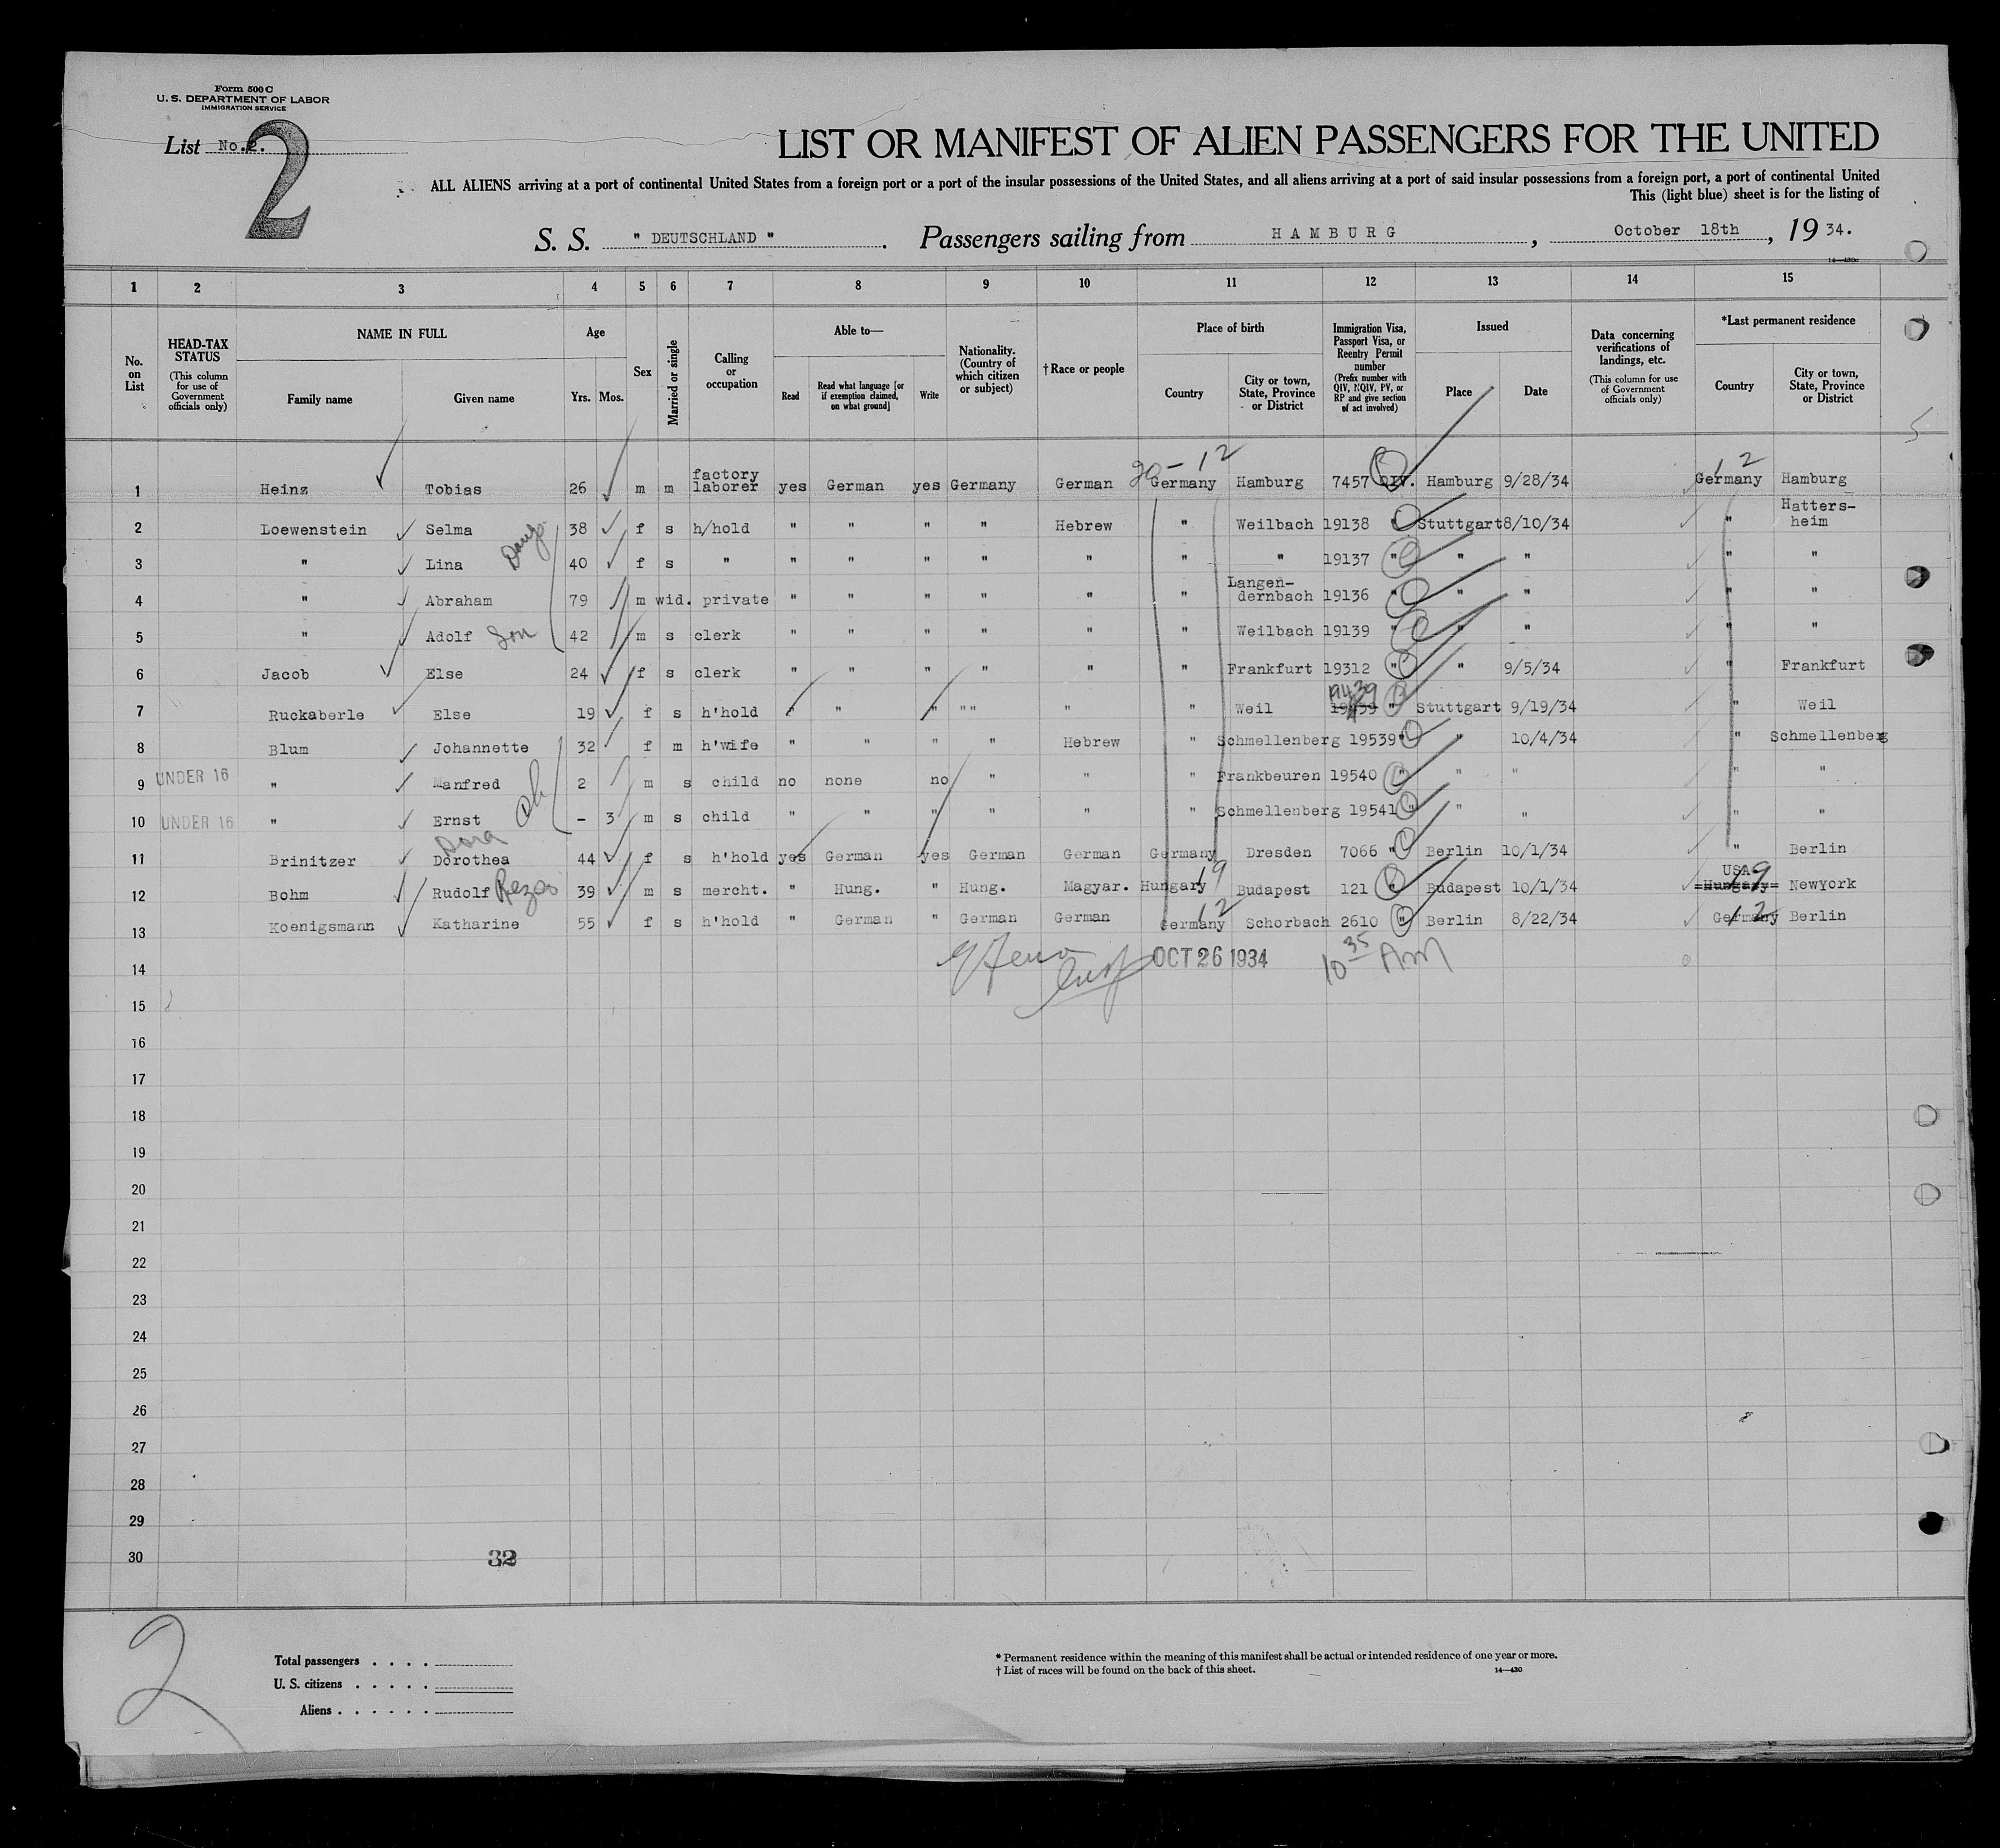 Form 500 C
U. S. DEPARTMENT OF LABOR
IMMIGRATION SERVICE
List No. 2.
2
LIST OR MANIFEST OF ALIEN PASSENGERS FOR THE UNITED
ALL ALIENS arriving at a port of continental United States from a foreign port or a port of the insular possessions of the United States, and all aliens arriving at a port of said insular possessions from a foreign port, a port of continental United
This (light blue) sheet is for the listing of
S. S. " DEUTSCHLAND " . Passengers sailing from HAMBURG , October 18th , 19 34.
1 2 3 4 5 6 7 8 9 10 11 12 13 14 15
No. on List
HEAD-TAX STATUS (This column for use of Government officials only)
NAME IN FULL
Family name Given name
Age
Yrs. Mos.
Sex
Married or single
Calling or occupation
Able to—
Read Read what language [or if exemption claimed, on what ground] Write
Nationality. (Country of which citizen or subject)
† Race or people
Place of birth
Country City or town, State, Province or District
Immigration Visa, Passport Visa, or Reentry Permit number (Prefix number with QIV, NQIV, PV, or RP and give section of act involved)
Issued
Place Date
Data concerning verifications of landings, etc. (This column for use of Government officials only)
*Last permanent residence
Country City or town, State, Province or District
20-12 12
1 Heinz Tobias 26 m m factory laborer yes German yes Germany German Germany Hamburg 7457 QIV. Hamburg 9/28/34 Germany Hamburg
2 Loewenstein Selma 38 f s h/hold " " " " Hebrew " Weilbach 19138 " Stuttgart 8/10/34 " Hattersheim
3 " Lina 40 f s " " " " " " " " 19137 " " " " "
4 " Abraham 79 m wid. private " " " " " " Langen-dernbach 19136 " " " " "
5 " Adolf Son 42 m s clerk " " " " " " Weilbach 19139 " " " " "
6 Jacob Else 24 f s clerk " " " " " " Frankfurt 19312 " " 9/5/34 " Frankfurt
19439
7 Ruckaberle Else 19 f s h'hold " " " "" " " Weil 19439 " Stuttgart 9/19/34 " Weil
8 Blum Johannette 32 f m h'wife " " " " Hebrew " Schmellenberg 19539 " " 10/4/34 " Schmellenberg
9 UNDER 16 " Manfred 2 m s child no none no " " " Frankbeuren 19540 " " " " "
10 UNDER 16 " Ernst - 3 m s child " " " " " " Schmellenberg 19541 " " " " "
Dora
11 Brinitzer Dorothea 44 f s h'hold yes German yes German German Germany Dresden 7066 " Berlin 10/1/34 " Berlin
12 Bohm Rudolf Rezso 39 m s mercht. " Hung. " Hung. Magyar. Hungary 19 Budapest 121 " Budapest 10/1/34 USA Hungary 19 NewYork
13 Koenigsmann Katharine 55 f s h'hold " German " German German Germany 12 Schorbach 2610 " Berlin 8/22/34 Germany 12 Berlin
14 OCT 26 1934 10 35 AM
15
16
17
18
19
20
21
22
23
24
25
26
27
28
29
30 32
2
Total passengers . . . .
U. S. citizens . . . . .
Aliens . . . . . .
* Permanent residence within the meaning of this manifest shall be actual or intended residence of one year or more.
† List of races will be found on the back of this sheet. 14—430